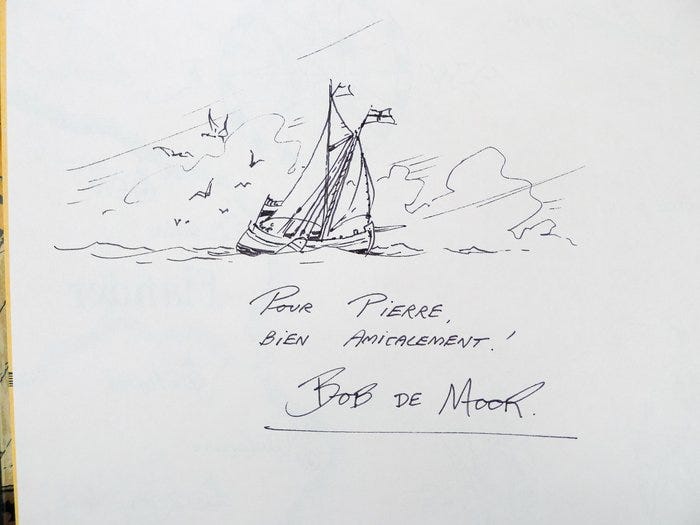 POUR PIERRE,
BIEN AMICALEMENT!
BOB DE MOOR.